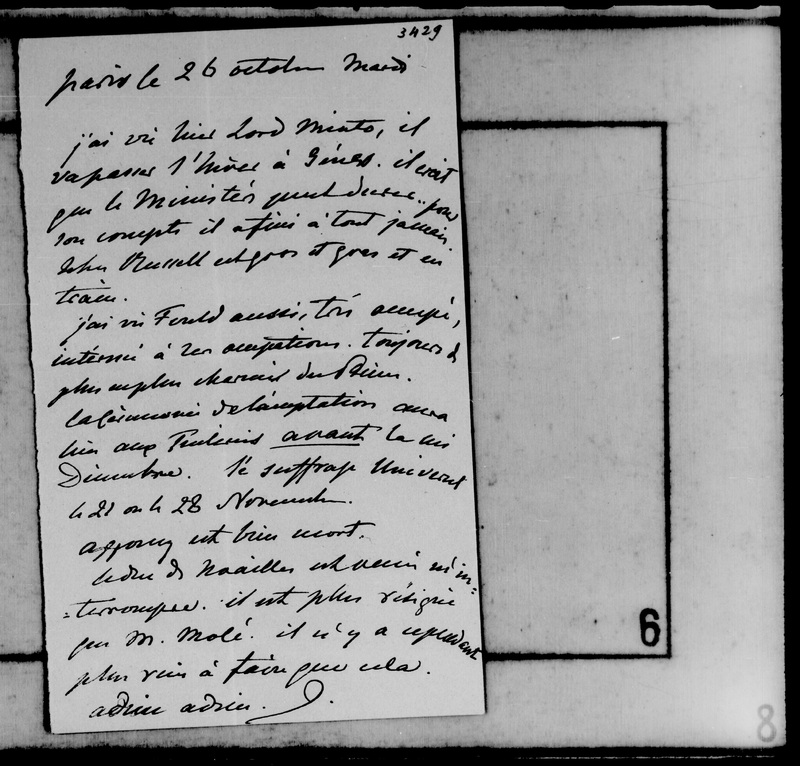 3429
Paris le 26 octobre Mardi
j'ai vu hier Lord Minto, il
va passer l'hiver à Gènes. il croit
que le Ministère peut durer.. pour
son compte il a fini à tout jamais.
John Russell est gros et gras et en
train.
j'ai vu Fould aussi, très occupé,
intéressé à ses occupations. toujours de
plus en plus charmé du Prince.
la Cérémonie de l'acceptation aura
lieu aux Tuileries avant la mi
Décembre. le suffrage Universel
le 21 ou le 28 Novembre.
Appony est bien mort.
le duc de Noailles est venu m'in=
=terrompre. il est plus résigné
que M. Molé. il n'y a cependant
plus rien à faire que cela.
adieu adieu.
6
8